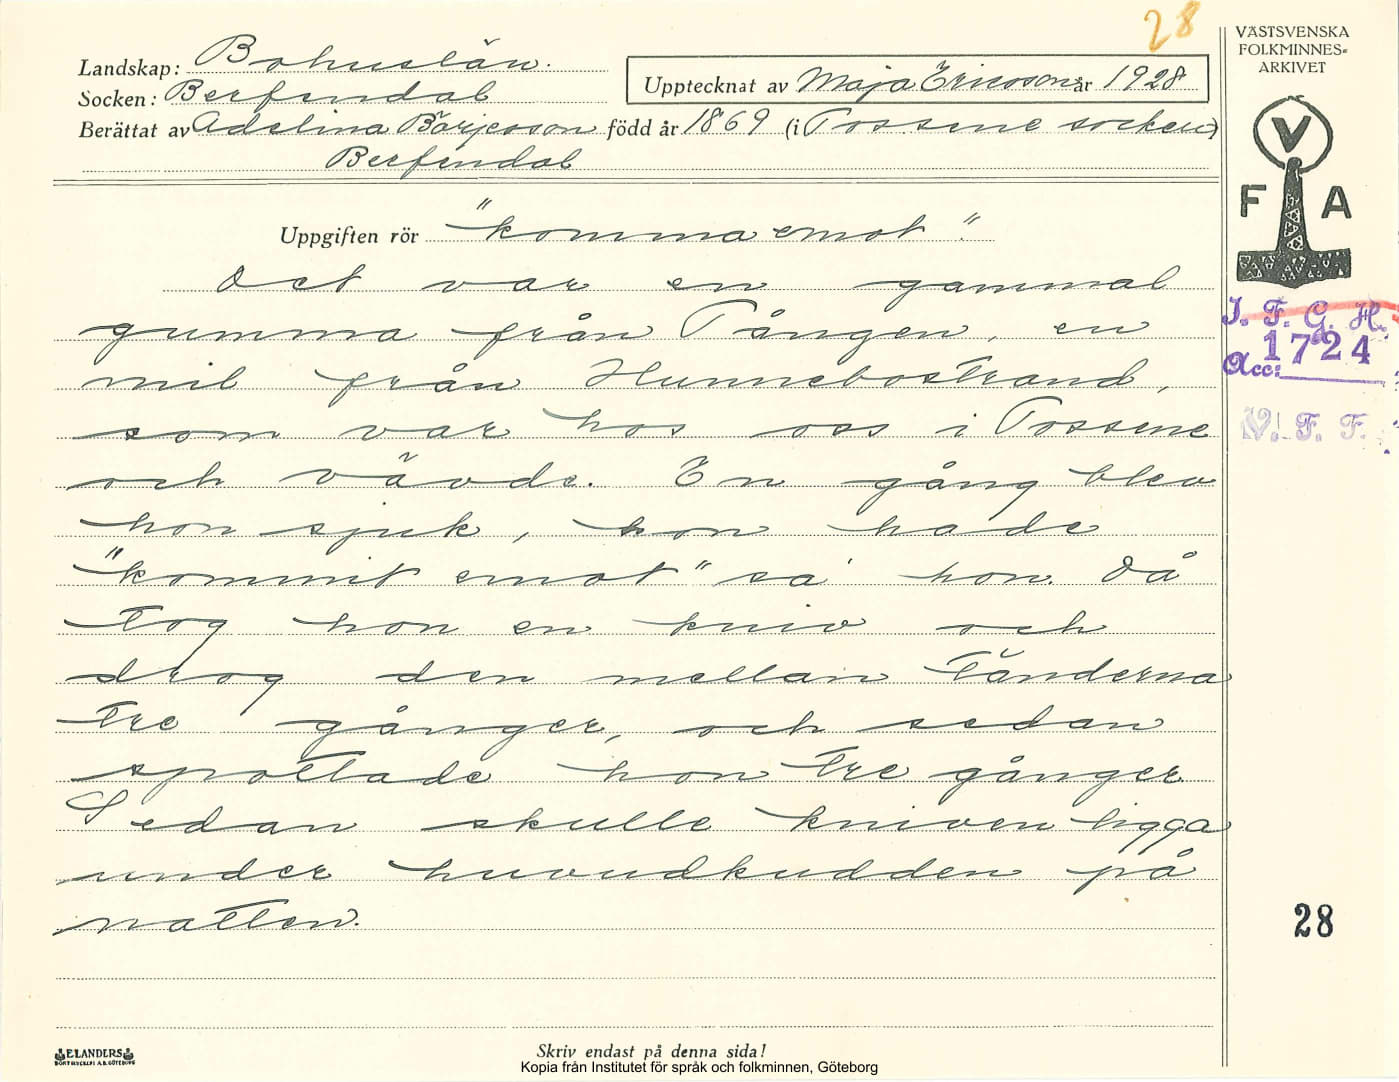 28
Landskap: Bohuslän.
Socken: Berfendal
Upptecknat av Maja Ericsson år 1928
Berättat av Adelina Börjesson född år 1869 (i Tossene socken)
Berfendal
VÄSTSVENSKA
FOLKMINNES-
ARKIVET
V
F A
I. F. G. H.
1724
Acc:
V. F. F.
Uppgiften rör "komma emot".
Det var en gammal
gumma från Tången, en
mil från Hunnebostrand,
som var hos oss i Tossene
och vävde. En gång blev
hon sjuk, hon hade
"kommit emot" sa' hon. Då
tog hon en kniv och
drog den mellan tänderna
tre gånger, och sedan
spottade hon tre gånger.
Sedan skulle kniven ligga
under huvudkudden på
natten.
28
ELANDERS
Skriv endast på denna sida!
Kopia från Institutet för språk och folkminnen, Göteborg